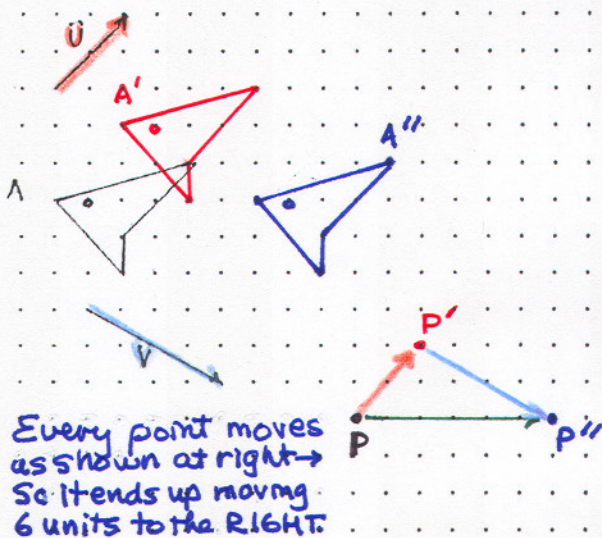 U
A'
A''
A
V
P'
P
P''
Every point moves
as shown at right→
So it ends up moving
6 units to the RIGHT.